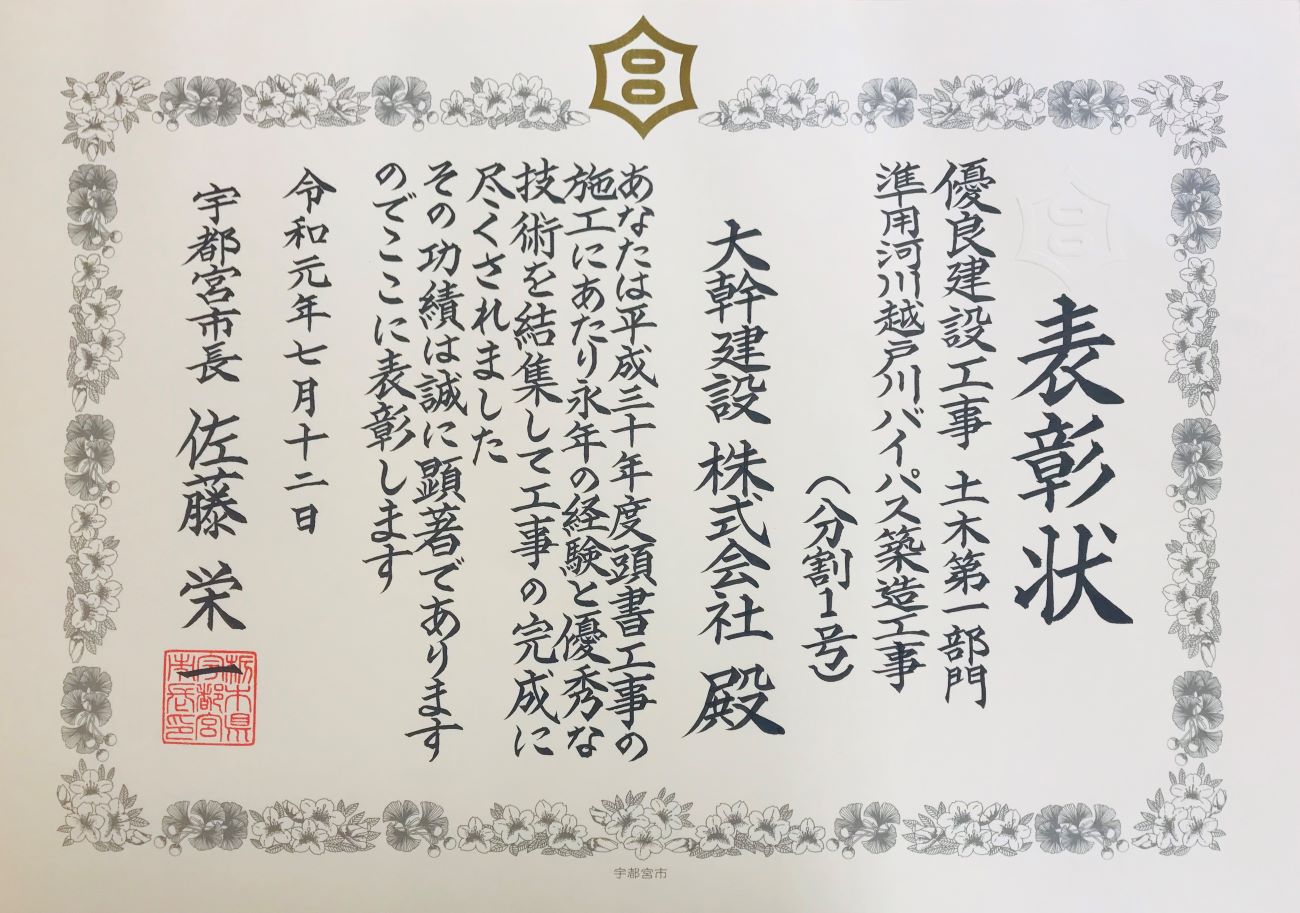 表彰状
優良建設工事 土木第一部門
準用河川越戸川バイパス築造工事
（分割1号）
大幹建設 株式会社 殿
あなたは平成三十年度頭書工事の
施工にあたり永年の経験と優秀な
技術を結集して工事の完成に
尽くされました
その功績は誠に顕著であります
のでここに表彰します
令和元年七月十二日
宇都宮市長 佐藤 栄一
栃木県
宇都宮
市長印
宇都宮市